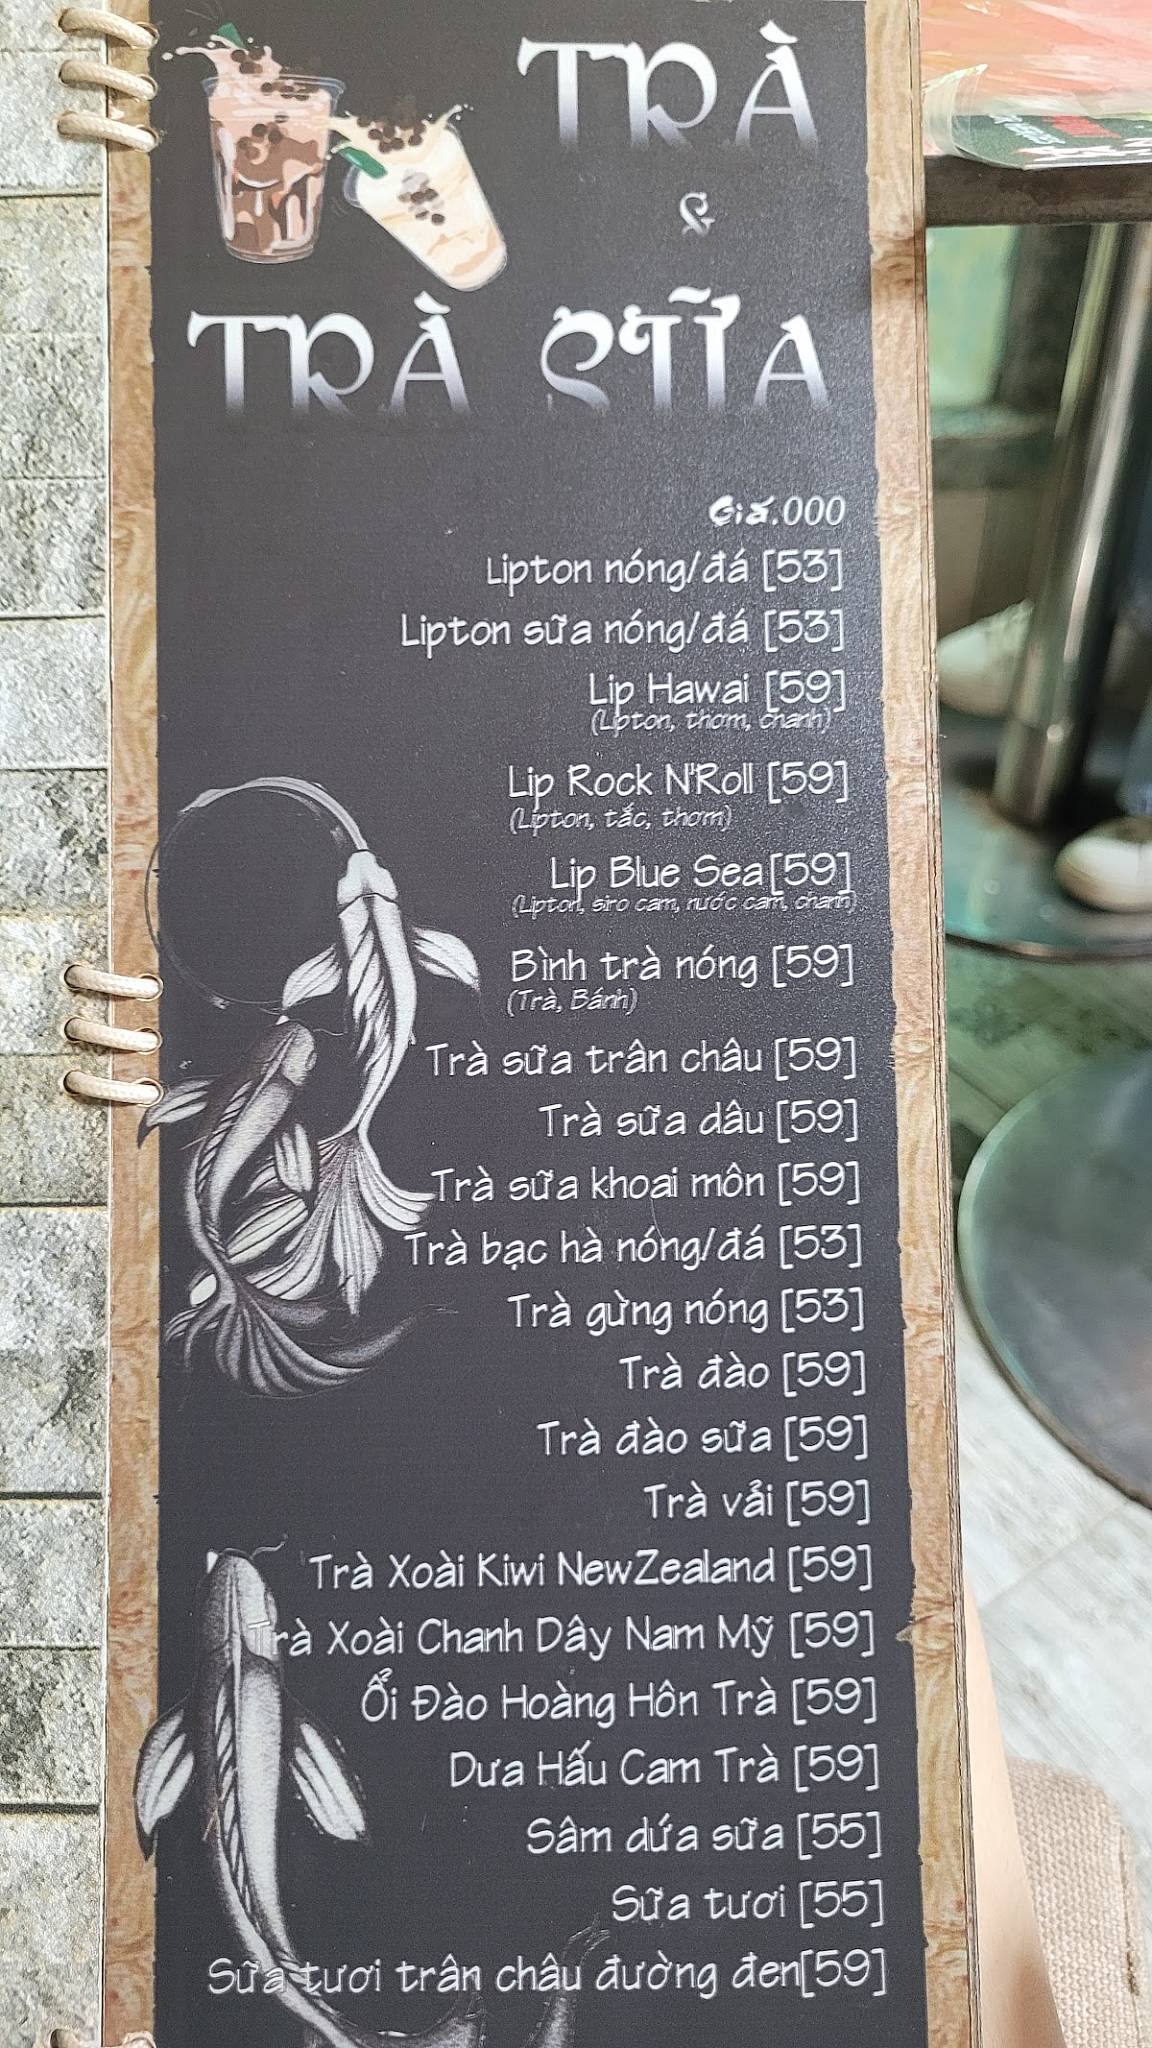 TRÀ
&
TRÀ SỮA
Giá.000
Lipton nóng/đá [53]
Lipton sữa nóng/đá [53]
Lip Hawai [59]
(Lipton, thơm, chanh)
Lip Rock N'Roll [59]
(Lipton, tắc, thơm)
Lip Blue Sea[59]
(Lipton, siro cam, nước cam, chanh)
Bình trà nóng [59]
(Trà, Bánh)
Trà sữa trân châu [59]
Trà sữa dâu [59]
Trà sữa khoai môn [59]
Trà bạc hà nóng/đá [53]
Trà gừng nóng [53]
Trà đào [59]
Trà đào sữa [59]
Trà vải [59]
Trà Xoài Kiwi NewZealand [59]
Trà Xoài Chanh Dây Nam Mỹ [59]
Ổi Đào Hoàng Hôn Trà [59]
Dưa Hấu Cam Trà [59]
Sâm dứa sữa [55]
Sữa tươi [55]
Sữa tươi trân châu đường đen[59]